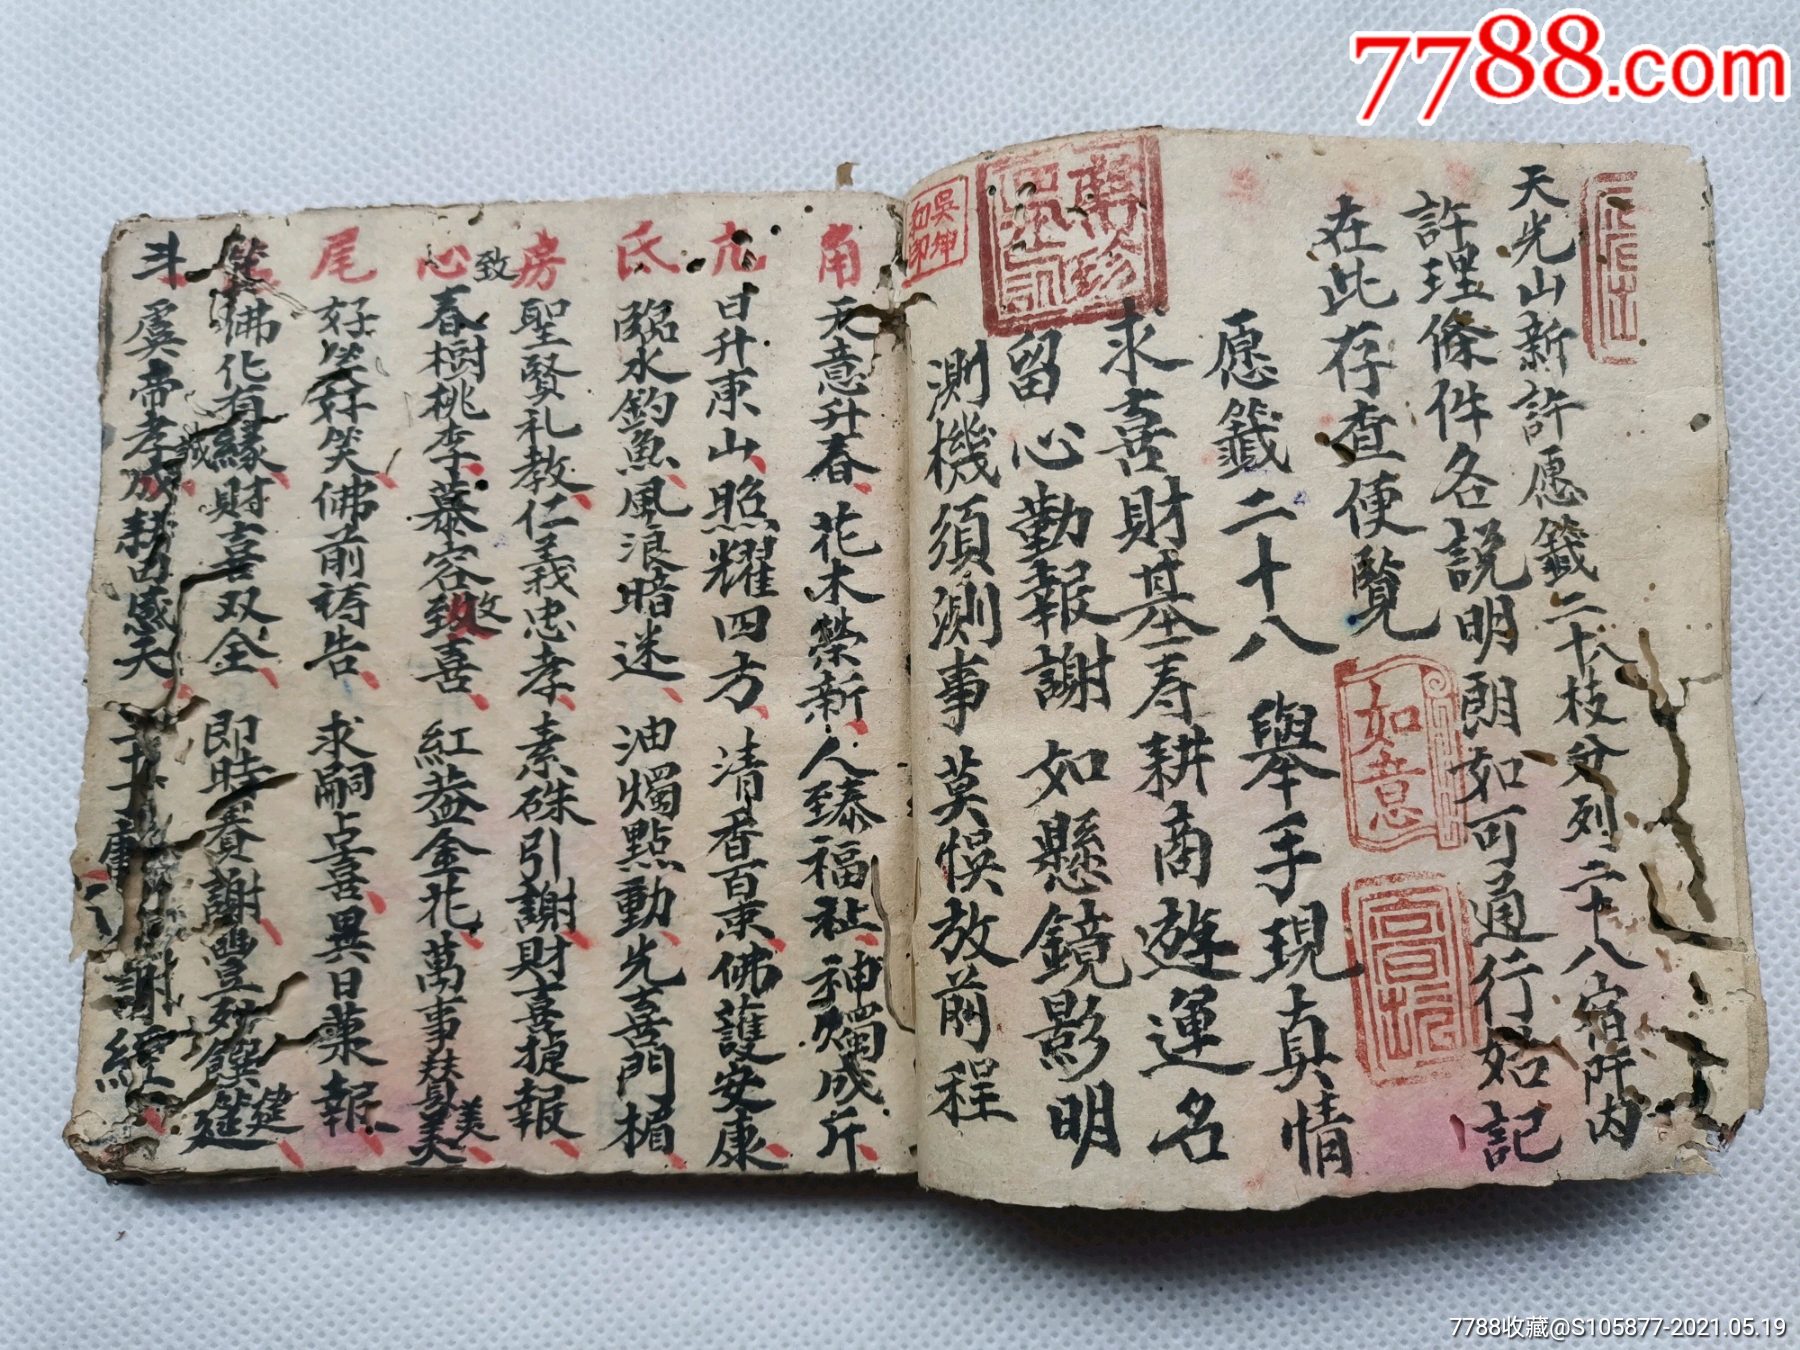 7788.com
天光山新許愿籤二十八枝分列二十八宿阡内
許理條件各説明朗如可通行始記
在此存查便覽
愿籤二十八 舉手現真情
求喜財基寿 耕商遊運名
留心勤報謝 如懸鏡影明
測機須測事 莫悞放前程
如意
吳坤和印
角 天意升春花木榮新人臻福祉神燭成斤
亢 日升東山照耀四方清香百束佛護安康
氐 臨水釣魚風浪暗迷油燭點動先喜門楣
房 聖賢礼教仁義忠孝素硃引謝財喜捷報
心 致 春樹桃李暮容致喜紅燭金花萬事賛美
致
美
尾 好笑好笑佛前祷告求嗣占喜異日稟報
佛化有緣財喜双全即時賽謝豐列饌筵
建
斗 虞帝孝成耕田感天 謝經
誠
7788收藏@S105877-2021.05.19